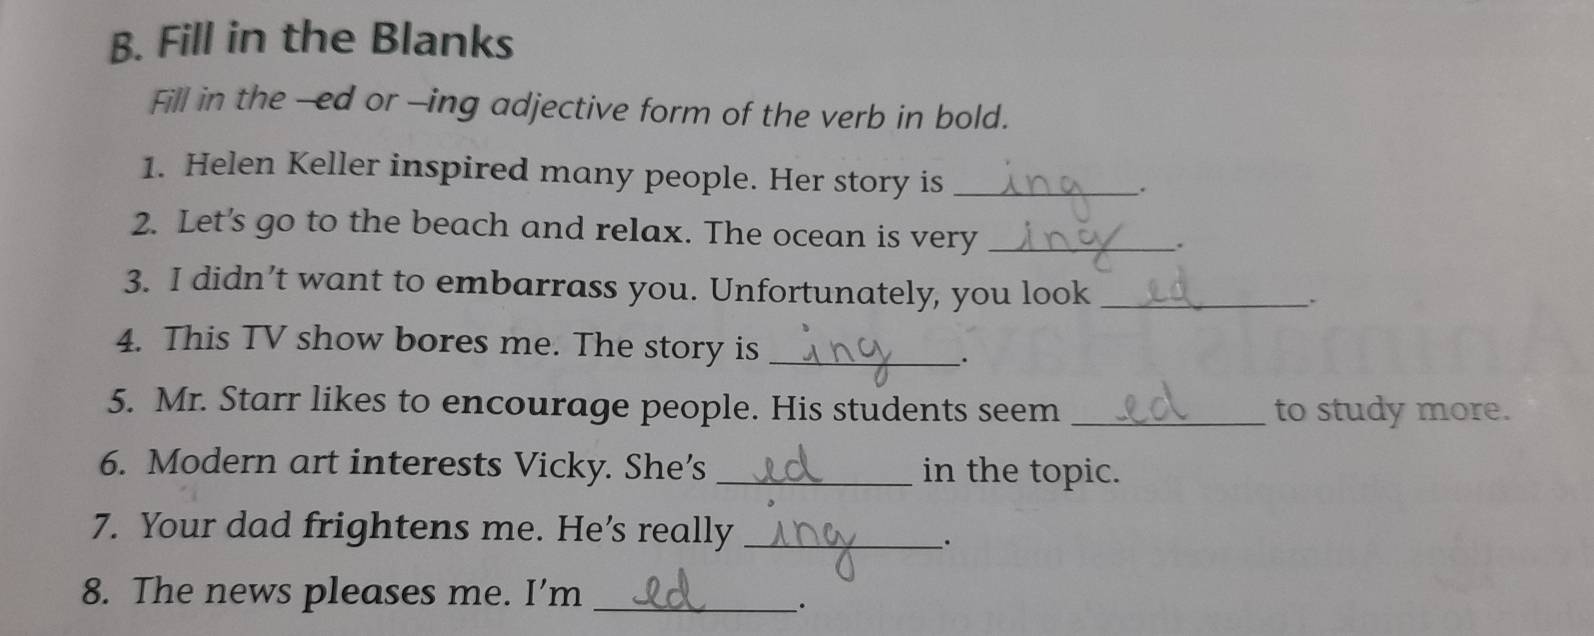 B. Fill in the Blanks
Fill in the –ed or –ing adjective form of the verb in bold.
1. Helen Keller inspired many people. Her story is ing.
2. Let's go to the beach and relax. The ocean is very ing.
3. I didn't want to embarrass you. Unfortunately, you look ed.
4. This TV show bores me. The story is ing.
5. Mr. Starr likes to encourage people. His students seem ed to study more.
6. Modern art interests Vicky. She's ed in the topic.
7. Your dad frightens me. He's really ing.
8. The news pleases me. I'm ed.